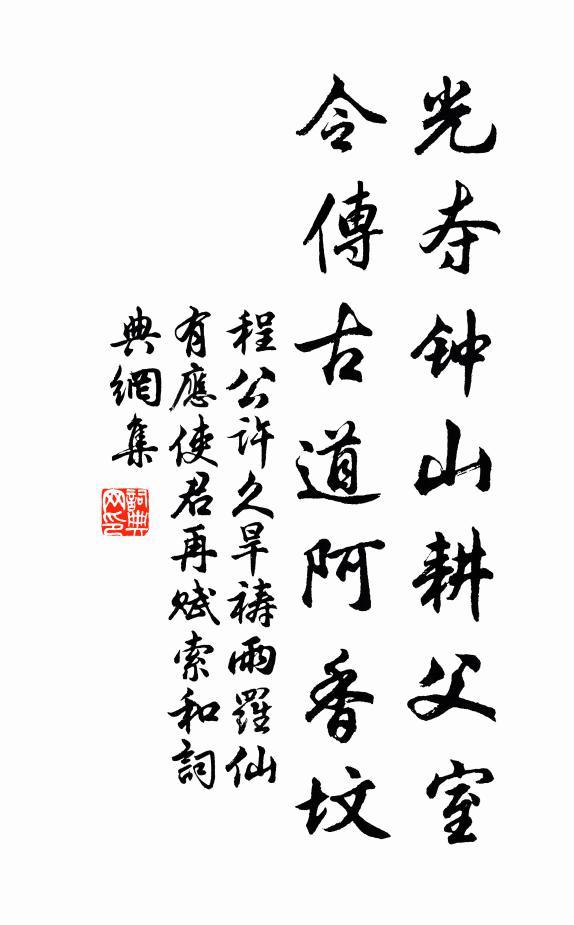 光夺钟山耕父室
令傳古道阿香坟
程公許久旱禱雨羅仙
有應使君再赋索和詞
典網集
詞典网印